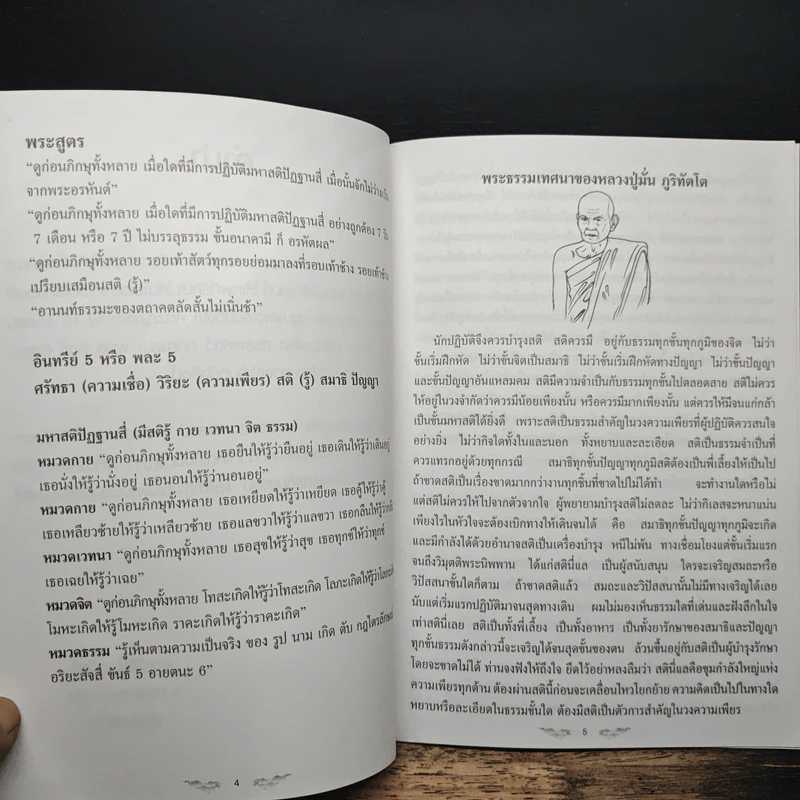 พระสูตร
“ดูก่อนภิกษุทั้งหลาย เมื่อใดที่มีการปฏิบัติมหาสติปัฏฐานสี่ เมื่อนั้นจักไม่ว่างเว้น
จากพระอรหันต์”
“ดูก่อนภิกษุทั้งหลาย เมื่อใดที่มีการปฏิบัติมหาสติปัฏฐานสี่ อย่างถูกต้อง 7 วัน
7 เดือน หรือ 7 ปี ไม่บรรลุธรรม ขั้นอนาคามี ก็ อรหัตผล”
“ดูก่อนภิกษุทั้งหลาย รอยเท้าสัตว์ทุกรอยย่อมมาลงที่รอบเท้าช้าง รอยเท้าช้าง
เปรียบเสมือนสติ (รู้)
“อานนท์ธรรมะของตถาคตลัดสั้นไม่เนิ่นช้า”
อินทรีย์ 5 หรือ พละ 5
ศรัทธา (ความเชื่อ) วิริยะ (ความเพียร) สติ (รู้) สมาธิ ปัญญา
มหาสติปัฏฐานสี่ (มีสติรู้ กาย เวทนา จิต ธรรม)
หมวดกาย “ดูก่อนภิกษุทั้งหลาย เธอยืนให้รู้ว่ายืนอยู่ เธอเดินให้รู้ว่าเดินอยู่
เธอนั่งให้รู้ว่านั่งอยู่ เธอนอนให้รู้ว่านอนอยู่”
หมวดกาย “ดูก่อนภิกษุทั้งหลาย เธอเหยียดให้รู้ว่าเหยียด เธอคู้ให้รู้ว่าคู้
เธอเหลียวซ้ายให้รู้ว่าเหลียวซ้าย เธอแลขวาให้รู้ว่าแลขวา เธอกลืนให้รู้ว่ากลืน
หมวดเวทนา “ดูก่อนภิกษุทั้งหลาย เธอสุขให้รู้ว่าสุข เธอทุกข์ให้ว่าทุกข์
เธอเฉยให้รู้ว่าเฉย”
หมวดจิต “ดูก่อนภิกษุทั้งหลาย โทสะเกิดให้รู้ว่าโทสะเกิด โลภะเกิดให้รู้ว่าโลภะเกิด
โมหะเกิดให้รู้โมหะเกิด ราคะเกิดให้รู้ว่าราคะเกิด”
หมวดธรรม “รู้เห็นตามความเป็นจริง ของ รูป นาม เกิด ดับ กฎไตรลักษณ์
อริยะสัจสี่ ขันธ์ 5 อายตนะ 6”
4
พระธรรมเทศนาของหลวงปู่มั่น ภูริทัตโต
นักปฏิบัติจึงควรบำรุงสติ สติควรมี อยู่กับธรรมทุกขั้นทุกภูมิของจิต ไม่ว่า
ขั้นเริ่มฝึกหัด ไม่ว่าขั้นจิตเป็นสมาธิ ไม่ว่าขั้นเริ่มฝึกหัดทางปัญญา ไม่ว่าขั้นปัญญา
และขั้นปัญญาอันแหลมคม สติมีความจำเป็นกับธรรมทุกขั้นไปตลอดสาย สติไม่ควร
ให้อยู่ในวงจำกัดว่าควรมีน้อยเพียงนั้น หรือควรมีมากเพียงนั้น แต่ควรให้มีจนแก่กล้า
เป็นขั้นมหาสติได้ยิ่งดี เพราะสติเป็นธรรมสำคัญในวงความเพียรที่ผู้ปฏิบัติควรสนใจ
อย่างยิ่ง ไม่ว่ากิจใดทั้งในและนอก ทั้งหยาบและละเอียด สติเป็นธรรมจำเป็นที่
ควรแทรกอยู่ด้วยทุกกรณี สมาธิทุกขั้นปัญญาทุกภูมิสติต้องเป็นพี่เลี้ยงให้เป็นไป
ถ้าขาดสติเป็นเรื่องขาดมากกว่างานทุกชิ้นที่ขาดไปไม่ได้ทำ จะทำงานใดหรือไม่
แต่สติไม่ควรให้ไปจากตัวจากใจ ผู้พยายามบำรุงสติไม่ลดละ ไม่ว่ากิเลสจะหนาแน่น
เพียงไรในหัวใจจะต้องเบิกทางให้เดินจนได้ คือ สมาธิทุกขั้นปัญญาทุกภูมิจะเกิด
และมีกำลังได้ด้วยอำนาจสติเป็นเครื่องบำรุง หนีไม่พ้น ทางเชื่อมโยงแต่ขั้นเริ่มแรก
จนถึงวิมุตติพระนิพพาน ได้แก่สตินี่แล เป็นผู้สนับสนุน ใครจะเจริญสมถะหรือ
วิปัสสนาขั้นใดก็ตาม ถ้าขาดสติแล้ว สมถะและวิปัสสนานั้นไม่มีทางเจริญได้เลย
นับแต่เริ่มแรกปฏิบัติมาจนสุดทางเดิน ผมไม่มองเห็นธรรมใดที่เด่นและฝังลึกในใจ
เท่าสตินี่เลย สติเป็นทั้งพี่เลี้ยง เป็นทั้งอาหาร เป็นทั้งยารักษาของสมาธิและปัญญา
ทุกขั้นธรรมดังกล่าวนี้จะเจริญได้จนสุดขั้นของตน ล้วนขึ้นอยู่กับสติเป็นผู้บำรุงรักษา
โดยจะขาดไม่ได้ ท่านจงฟังให้ถึงใจ ยึดไว้อย่าหลงลืมว่า สตินี่แลคือขุมกำลังใหญ่แห่ง
ความเพียรทุกด้าน ต้องผ่านสตินี้ก่อนจะเคลื่อนไหวโยกย้าย ความคิดเป็นไปในทางใด
หยาบหรือละเอียดในธรรมขั้นใด ต้องมีสติเป็นตัวการสำคัญในวงความเพียร
5